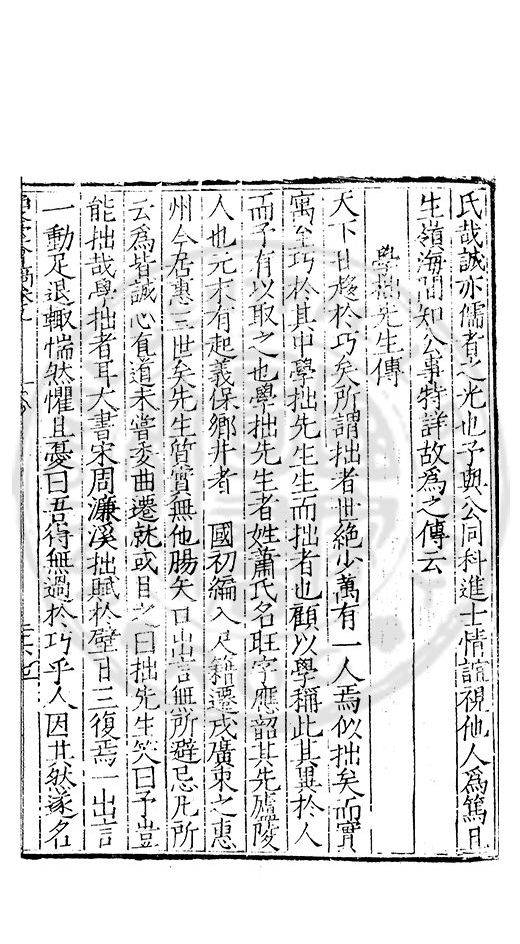 氏哉誠亦儒者之光也予與公同科進士情誼視他人為篤且
生嶺海間知公事特詳故為之傳云
學拙先生傳
天下日趨於巧矣所謂拙者世絕少萬有一人焉似拙矣而實
寓至巧於其中學拙先生生而拙者也顧以學稱此其異於人
而予有以取之也學拙先生者姓蕭氏名旺字應韶其先廬陵
人也元末有起義保鄉井者 國初編入尺籍遷戍廣東之惠
州今居惠三世矣先生質實無他腸矢口出言無所避忌凡所
云為皆誠心直道未嘗委曲遷就或目之曰拙先生笑曰予豈
能拙哉學拙者耳大書宋周濂溪拙賦於壁日三復焉一出言
一動足退輙惴然懼且憂曰吾得無過於巧乎人因其然遂名